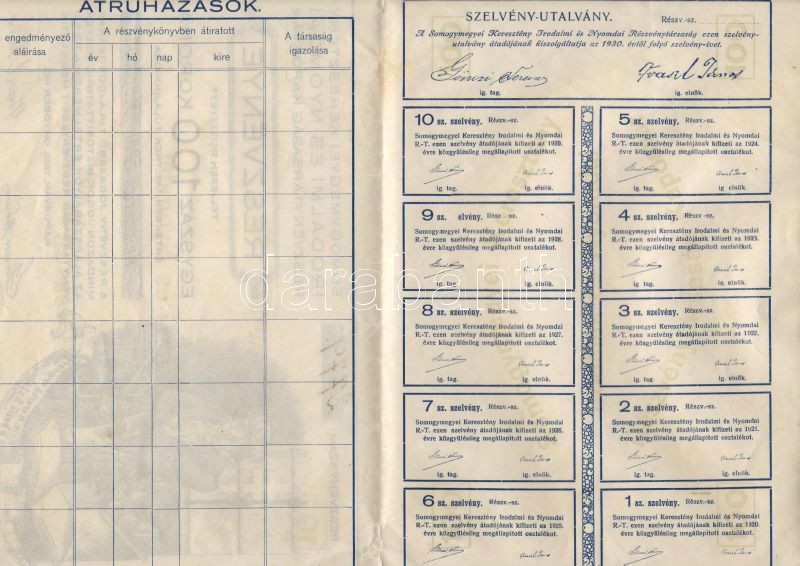 ÁTRUHÁZÁSOK.
engedményező aláírása
A részvénykönyvben átíratott
A társaság igazolása
év hó nap kire
SZELVÉNY-UTALVÁNY. Részv.-sz.
A Somogymegyei Keresztény Irodalmi és Nyomdai Részvénytársaság ezen szelvény-
utalvány átadójának kiszolgáltatja az 1930. évtől folyó szelvény-ívet.
ig. tag. ig. elnök.
10 sz. szelvény. Részv.-sz.
Somogymegyei Keresztény Irodalmi és Nyomdai
R.-T. ezen szelvény átadójának kifizeti az 1929.
évre közgyűlésileg megállapított osztalékot.
ig. tag. ig. elnök.
5 sz. szelvény. Részv.-sz.
Somogymegyei Keresztény Irodalmi és Nyomdai
R.-T. ezen szelvény átadójának kifizeti az 1924.
évre közgyűlésileg megállapított osztalékot.
ig. tag. ig. elnök.
9 sz. elvény. Rész -sz.
Somogymegyei Keresztény Irodalmi és Nyomdai
R.-T. ezen szelvény átadójának kifizeti az 1928.
évre közgyűlésileg megállapított osztalékot.
ig. tag. ig. elnök.
4 sz. szelvény. Részv.-sz.
Somogymegyei Keresztény Irodalmi és Nyomdai
R.-T. ezen szelvény átadójának kifizeti az 1923.
évre közgyűlésileg megállapított osztalékot.
ig. tag. ig. elnök.
8 sz. szelvény. Részv.-sz.
Somogymegyei Keresztény Irodalmi és Nyomdai
R.-T. ezen szelvény átadójának kifizeti az 1927.
évre közgyűlésileg megállapított osztalékot.
ig. tag. ig. elnök.
3 sz. szelvény. Részv.-sz.
Somogymegyei Keresztény Irodalmi és Nyomdai
R.-T. ezen szelvény átadójának kifizeti az 1922.
évre közgyűlésileg megállapított osztalékot.
ig. tag. ig. elnök.
7 sz. szelvény. Részv.-sz.
Somogymegyei Keresztény Irodalmi és Nyomdai
R.-T. ezen szelvény átadójának kifizeti az 1926.
évre közgyűlésileg megállapított osztalékot.
ig. tag. ig. elnök.
2 sz. szelvény. Részv.-sz.
Somogymegyei Keresztény Irodalmi és Nyomdai
R.-T. ezen szelvény átadójának kifizeti az 1921.
évre közgyűlésileg megállapított osztalékot.
ig. tag. ig. elnök.
6 sz. szelvény. Részv.-sz.
Somogymegyei Keresztény Irodalmi és Nyomdai
R.-T. ezen szelvény átadójának kifizeti az 1925.
évre közgyűlésileg megállapított osztalékot.
ig. tag. ig. elnök.
1 sz. szelvény. Részv.-sz.
Somogymegyei Keresztény Irodalmi és Nyomdai
R.-T. ezen szelvény átadójának kifizeti az 1920.
évre közgyűlésileg megállapított osztalékot.
ig. tag. ig. elnök.
darabanth